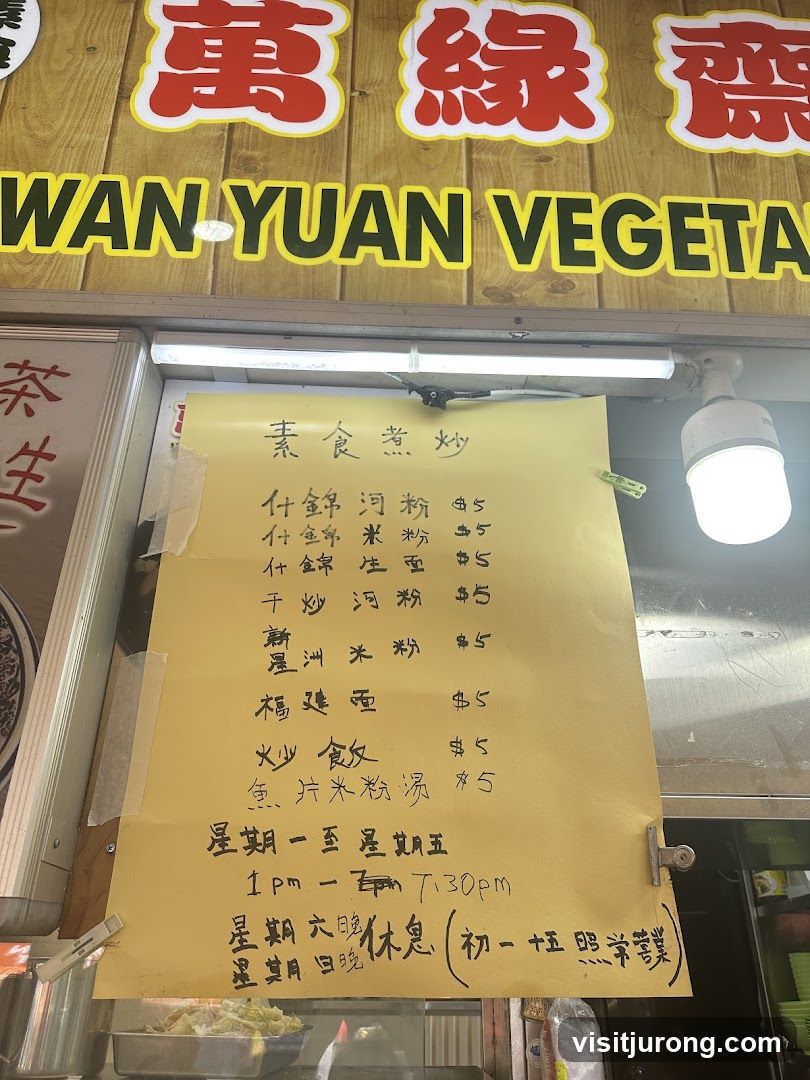 素食
萬緣齋
WAN YUAN VEGETA
茶
生
素食煮炒
什錦河粉 $5
什錦米粉 $5
什錦生面 $5
干炒河粉 $5
新
星洲米粉 $5
福建面 $5
炒飯 $5
魚片米粉湯 $5
星期一至星期五
1pm — 7.30pm
星期六晚休息(初一十五照常營業)
星期日晚
visitjurong.com